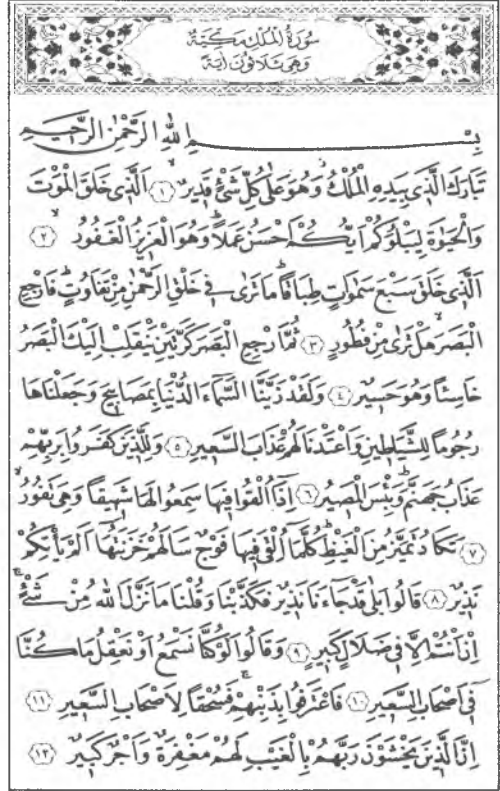 سُورَةُ الْمُلْكِ مَكِّيَّةٌ
وَهِيَ ثَلَاثُونَ اٰيَةً
بِسْمِ اللهِ الرَّحْمٰنِ الرَّحِيمِ
تَبَارَكَ الَّذِي بِيَدِهِ الْمُلْكُ وَهُوَ عَلٰى كُلِّ شَيْءٍ قَدِيرٌ ﴿١﴾ اَلَّذِي خَلَقَ الْمَوْتَ
وَالْحَيٰوةَ لِيَبْلُوَكُمْ اَيُّكُمْ اَحْسَنُ عَمَلًا وَهُوَ الْعَزِيزُ الْغَفُورُ ﴿٢﴾
اَلَّذِي خَلَقَ سَبْعَ سَمٰوَاتٍ طِبَاقًا مَا تَرٰى فِي خَلْقِ الرَّحْمٰنِ مِنْ تَفَاوُتٍ فَارْجِعِ
الْبَصَرَ هَلْ تَرٰى مِنْ فُطُورٍ ﴿٣﴾ ثُمَّ ارْجِعِ الْبَصَرَ كَرَّتَيْنِ يَنْقَلِبْ اِلَيْكَ الْبَصَرُ
خَاسِئًا وَهُوَ حَسِيرٌ ﴿٤﴾ وَلَقَدْ زَيَّنَّا السَّمَاءَ الدُّنْيَا بِمَصَابِيحَ وَجَعَلْنَاهَا
رُجُومًا لِلشَّيَاطِينِ وَاَعْتَدْنَا لَهُمْ عَذَابَ السَّعِيرِ ﴿٥﴾ وَلِلَّذِينَ كَفَرُوا بِرَبِّهِمْ
عَذَابُ جَهَنَّمَ وَبِئْسَ الْمَصِيرُ ﴿٦﴾ اِذَا اُلْقُوا فِيهَا سَمِعُوا لَهَا شَهِيقًا وَهِيَ تَفُورُ
﴿٧﴾ تَكَادُ تَمَيَّزُ مِنَ الْغَيْظِ كُلَّمَا اُلْقِيَ فِيهَا فَوْجٌ سَاَلَهُمْ خَزَنَتُهَا اَلَمْ يَأْتِكُمْ
نَذِيرٌ ﴿٨﴾ قَالُوا بَلٰى قَدْ جَاءَنَا نَذِيرٌ فَكَذَّبْنَا وَقُلْنَا مَا نَزَّلَ اللهُ مِنْ شَيْءٍ
اِنْ اَنْتُمْ اِلَّا فِي ضَلَالٍ كَبِيرٍ ﴿٩﴾ وَقَالُوا لَوْ كُنَّا نَسْمَعُ اَوْ نَعْقِلُ مَا كُنَّا
فِي اَصْحَابِ السَّعِيرِ ﴿١٠﴾ فَاعْتَرَفُوا بِذَنْبِهِمْ فَسُحْقًا لِاَصْحَابِ السَّعِيرِ ﴿١١﴾
اِنَّ الَّذِينَ يَخْشَوْنَ رَبَّهُمْ بِالْغَيْبِ لَهُمْ مَغْفِرَةٌ وَاَجْرٌ كَبِيرٌ ﴿١٢﴾